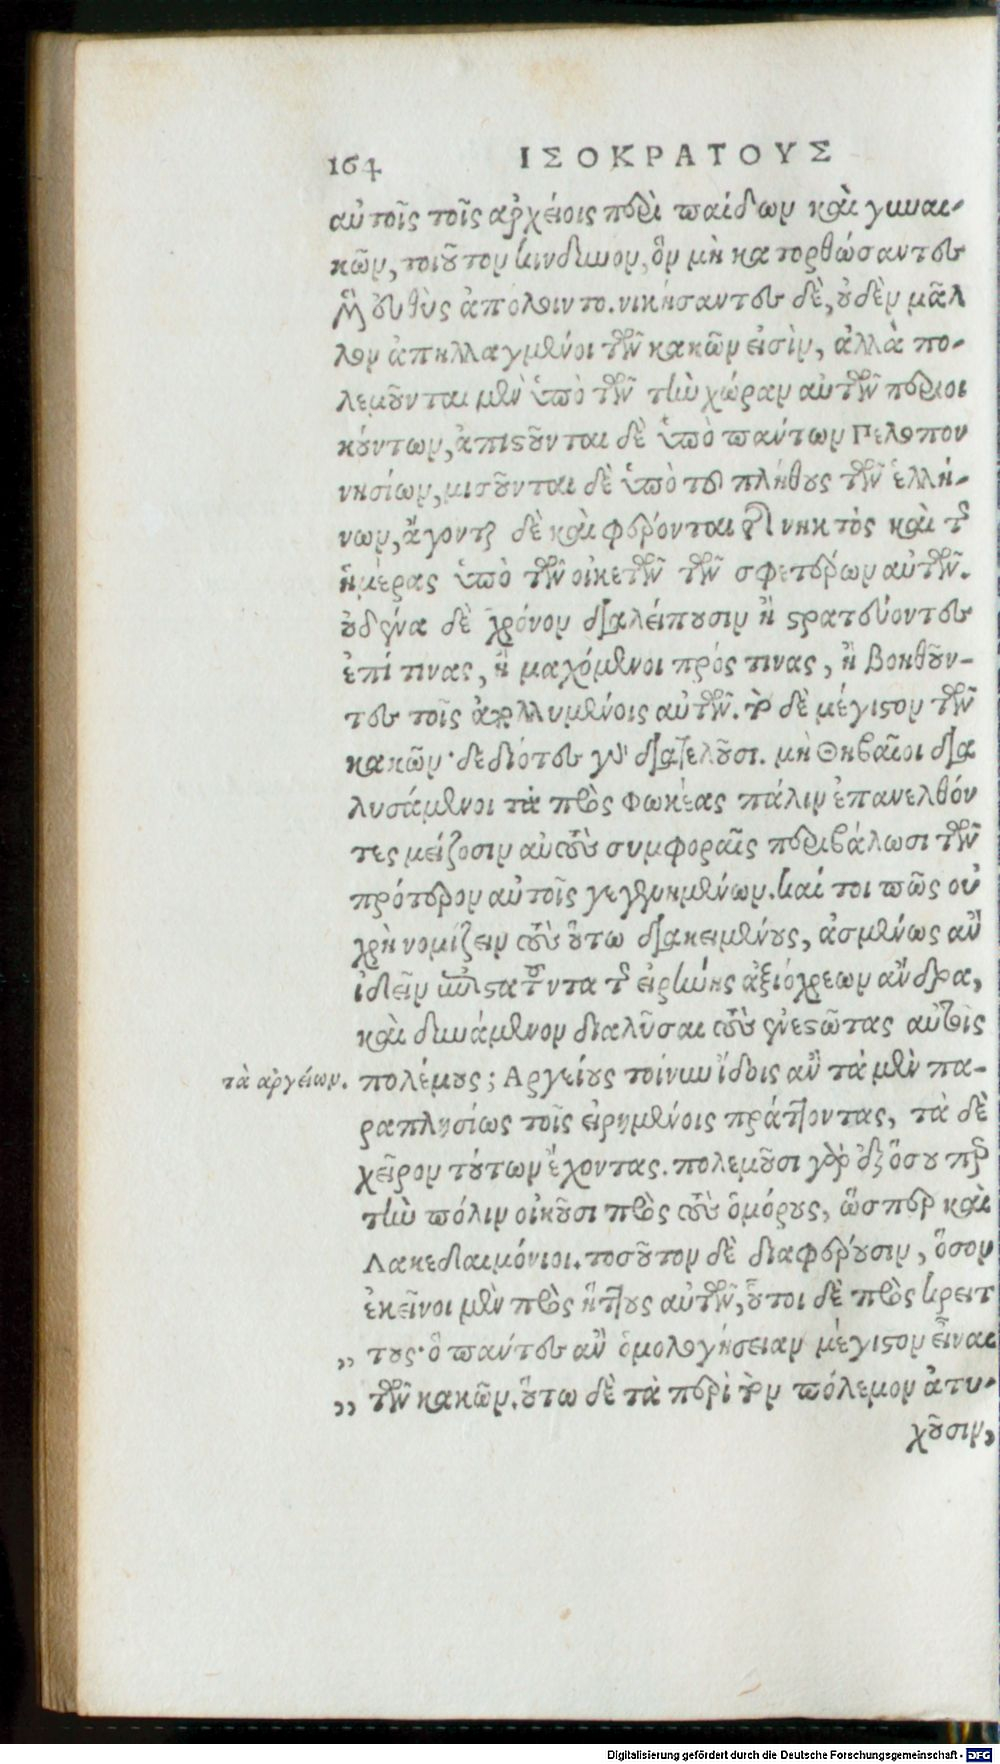 164 ΙΣΟΚΡΑΤΟΥΣ
αὐτοῖς τοῖς ἀρχείοις περὶ παίδων καὶ γυναι-
κῶν, τοιοῦτον κίνδυνον, ὃν μὴ κατορθώσαντες
μὲν εὐθὺς ἀπόλοιντο. νικήσαντες δὲ, οὐδὲν μᾶλ
λον ἀπηλλαγμένοι τῶν κακῶν εἰσὶν, ἀλλὰ πο-
λεμοῦνται μὲν ὑπὸ τῶν τὴν χώραν αὐτῶν περιοι
κούντων, ἀπιστοῦνται δὲ ὑπὸ πάντων Πελοπον
νησίων, μισοῦνται δὲ ὑπὸ τοῦ πλήθους τῶν ἑλλή-
νων, ἄγονται δὲ καὶ φέρονται τῆς νυκτὸς καὶ τῆς
ἡμέρας ὑπὸ τῶν οἰκετῶν τῶν σφετέρων αὐτῶν.
οὐδένα δὲ χρόνον διαλείπουσιν ἢ στρατεύοντες
ἐπί τινας, ἢ μαχόμενοι πρός τινας, ἢ βοηθοῦν-
τες τοῖς ἀπολλυμένοις αὐτῶν. τὸ δὲ μέγιστον τῶν
κακῶν· δεδιότες γὰρ διατελοῦσι. μὴ Θηβαῖοι δια
λυσάμενοι τὰ πρὸς Φωκέας πάλιν ἐπανελθόν
τες μείζοσιν αὐτοὺς συμφοραῖς περιβάλωσι τῶν
πρότερον αὐτοῖς γεγενημένων. καί τοι πῶς οὐ
χρὴ νομίζειν τοὺς οὕτω διακειμένους, ἀσμένως ἂν
ἰδεῖν ἐπιστατοῦντα τῆς εἰρήνης ἀξιόχρεων ἄνδρα,
καὶ δυνάμενον διαλῦσαι τοὺς ἐνεστῶτας αὐτοῖς
τὰ ἀργείων. πολέμους; Ἀργείους τοίνυν ἴδοις ἂν τὰ μὲν πα-
ραπλησίως τοῖς εἰρημένοις πράττοντας, τὰ δὲ
χεῖρον τούτων ἔχοντας. πολεμοῦσι γὰρ ἐξ ὅσου περ
τὴν πόλιν οἰκοῦσι πρὸς τοὺς ὁμόρους, ὥσπερ καὶ
Λακεδαιμόνιοι. τοσοῦτον δὲ διαφέρουσιν, ὅσον
ἐκεῖνοι μὲν πρὸς ἥττους αὐτῶν, οὗτοι δὲ πρὸς κρειτ
„ τους· ὃ πάντες ἂν ὁμολογήσειαν μέγιστον εἶναι
„ τῶν κακῶν. οὕτω δὲ τὰ περὶ τὸν πόλεμον ἀτυ-
χοῦσιν,
Digitalisierung gefördert durch die Deutsche Forschungsgemeinschaft - DFG